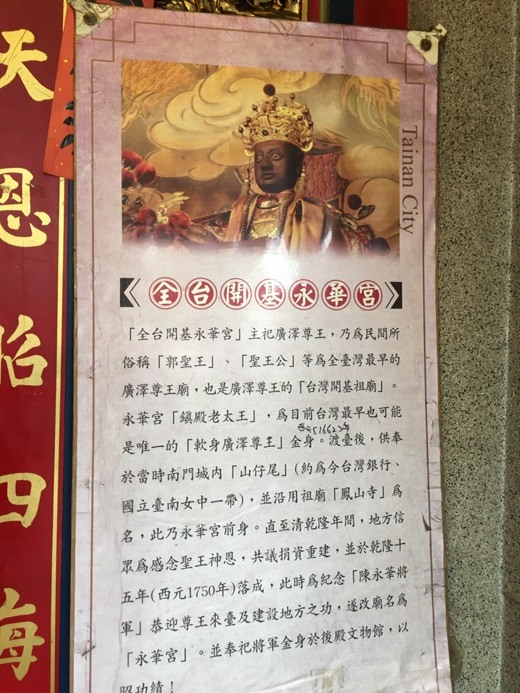 天恩昭四海
Tainan City
全台開基永華宮
「全台開基永華宮」主祀廣澤尊王,乃為民間所
俗稱「郭聖王」、「聖王公」等為全臺灣最早的
廣澤尊王廟,也是廣澤尊王的「台灣開基祖廟」。
永華宮「鎮殿老太王」,為目前台灣最早也可能
西元1662年
是唯一的「軟身廣澤尊王」金身。渡臺後,供奉
於當時南門城內「山仔尾」(約為今台灣銀行、
國立臺南女中一帶),並沿用祖廟「鳳山寺」為
名,此乃永華宮前身。直至清乾隆年間,地方信
眾為感念聖王神恩,共議捐資重建,並於乾隆十
五年(西元1750年)落成,此時為紀念「陳永華將
軍」恭迎尊王來臺及建設地方之功,遂改廟名為
「永華宮」。並奉祀將軍金身於後殿文物館,以
昭功績!